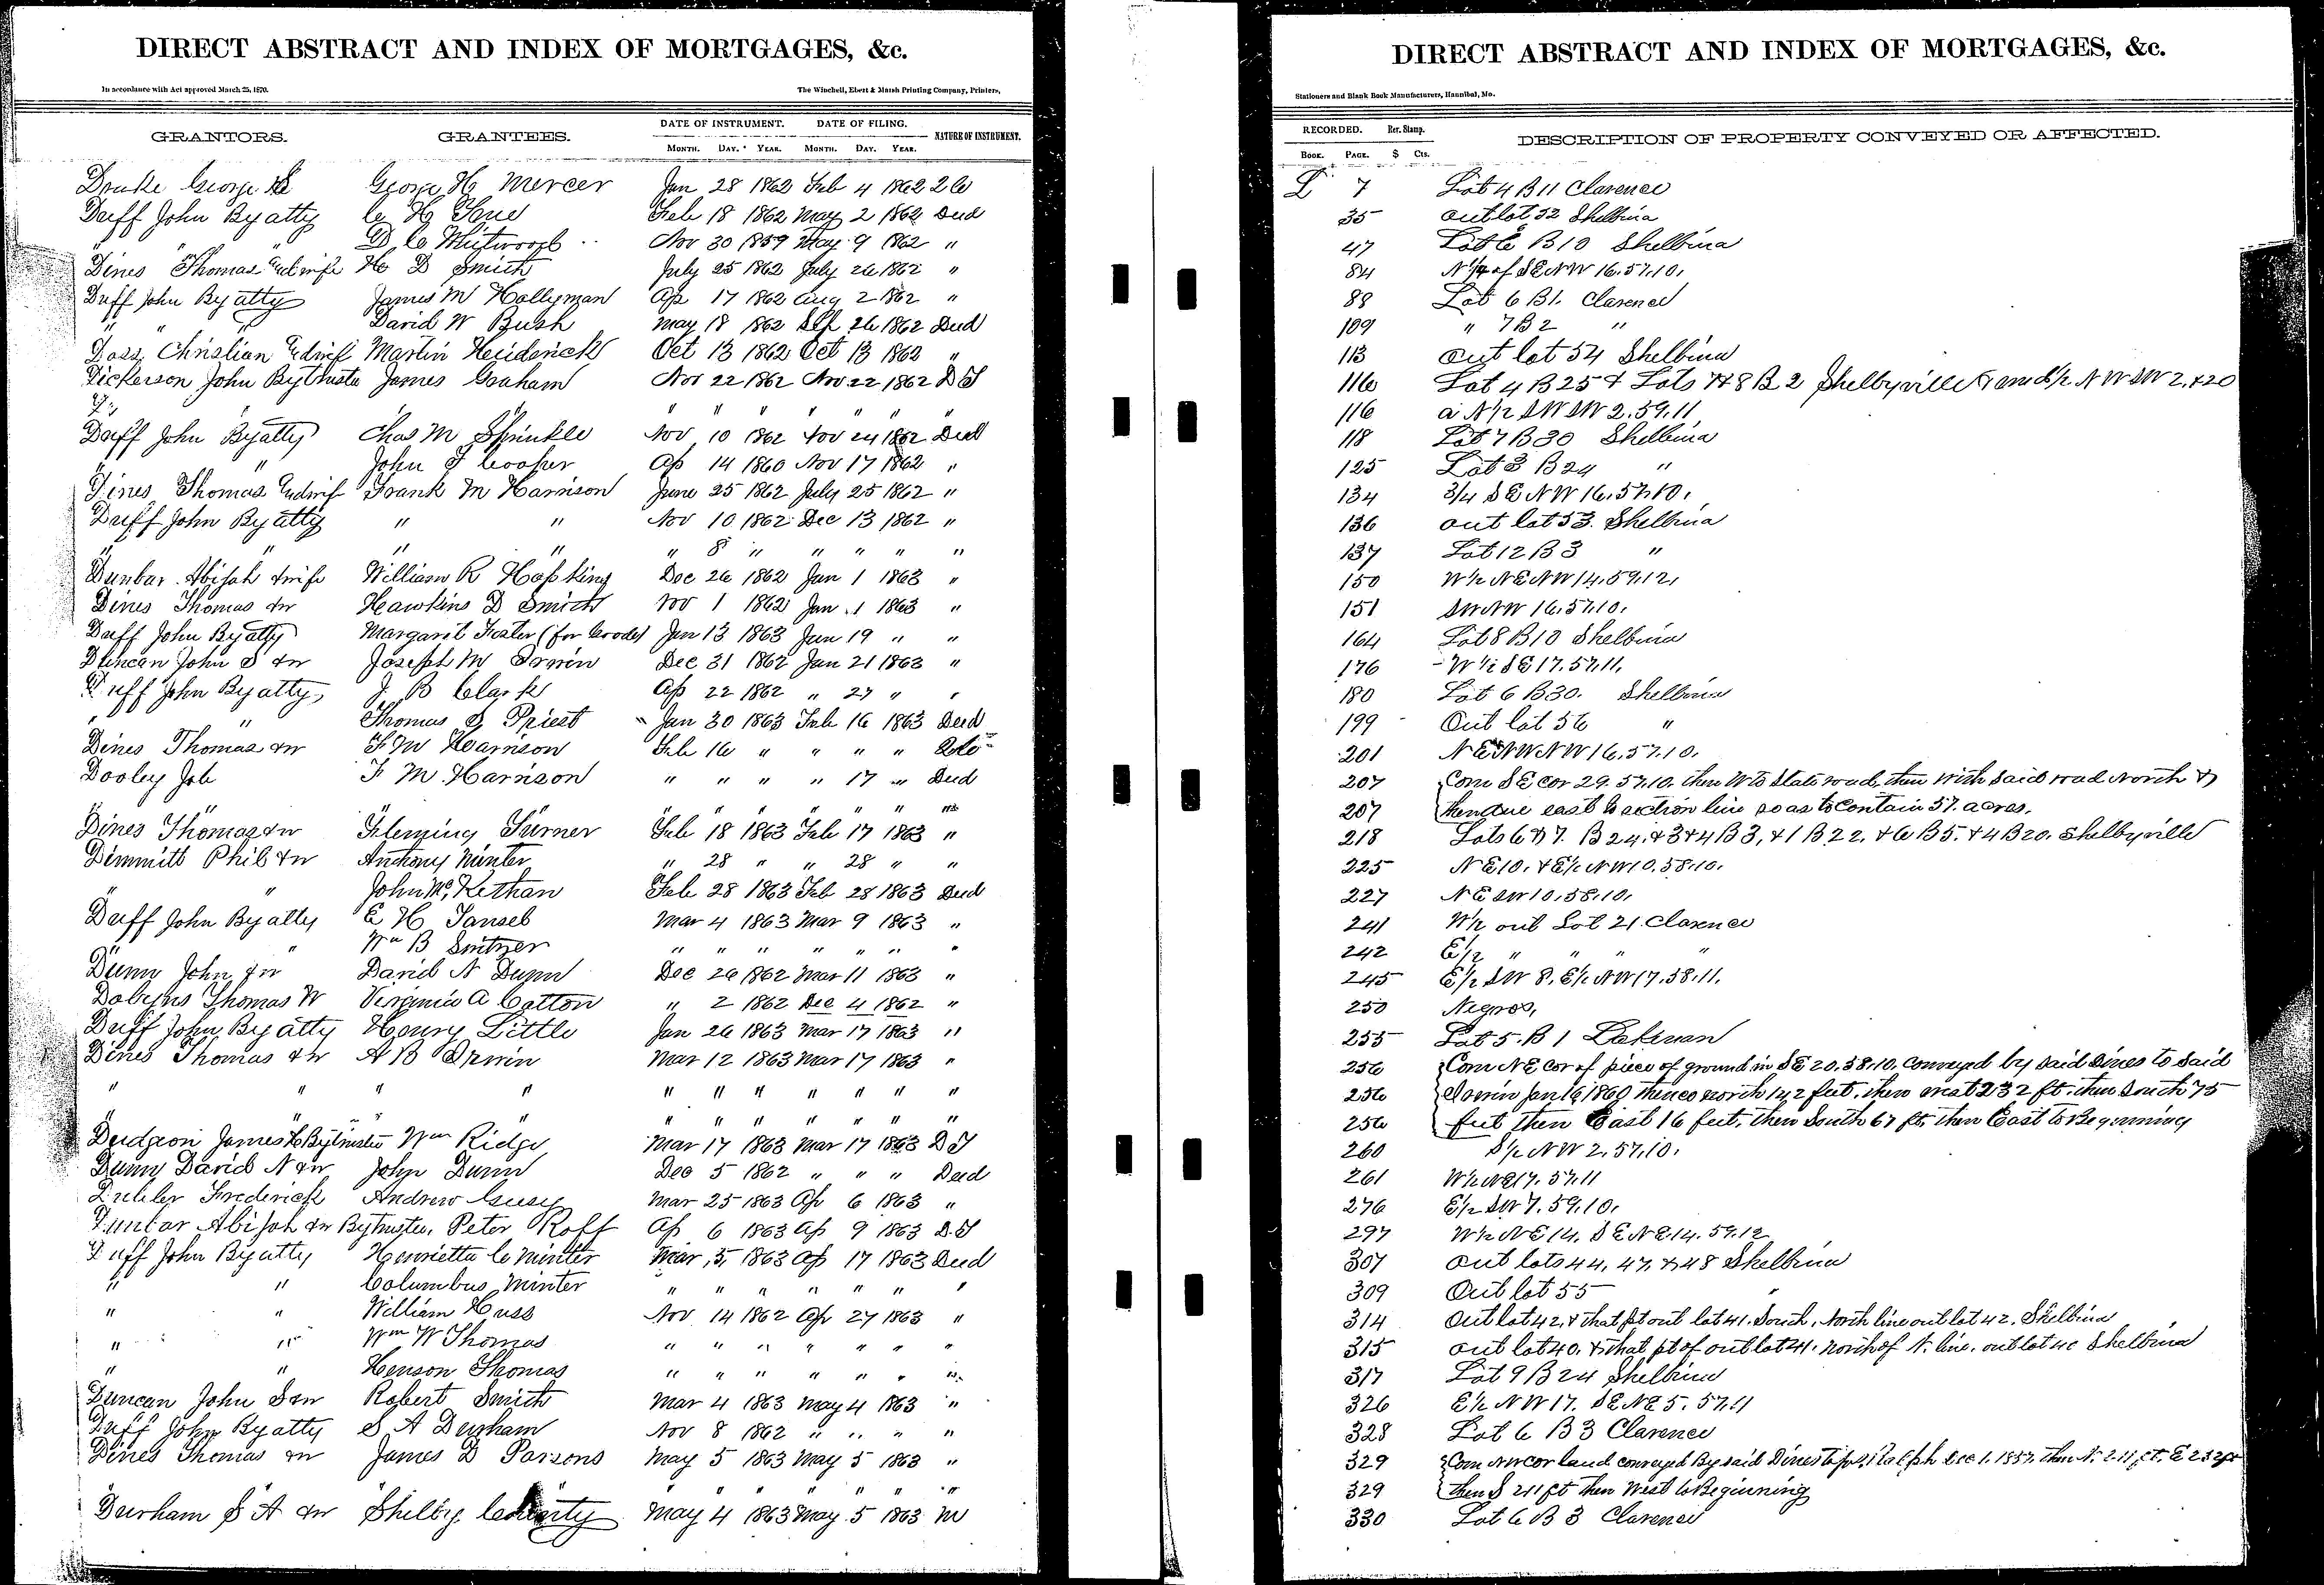 DIRECT ABSTRACT AND INDEX OF MORTGAGES, &c.
In accordance with Act approved March 25, 1870. The Winchell, Ebert & Marsh Printing Company, Printers,
GRANTORS. GRANTEES. DATE OF INSTRUMENT. DATE OF FILING. NATURE OF INSTRUMENT.
MONTH. DAY. YEAR. MONTH. DAY. YEAR.
Drake George George H Mercer Jan 28 1862 Feb 4 1862
Duff John By atty C H Tane Feb 18 1862 May 2 1862 Deed
" " D C Whitwood Nov 30 1859 May 9 1862 "
Dines Thomas and wife H D Smith July 25 1862 July 26 1862 "
Duff John By atty James M Hollyman Ap 17 1862 Aug 2 1862 "
" " David W Bush May 18 1862 Sep 26 1862 Deed
Doss Christian & wife Martin Heiderick Oct 13 1862 Oct 13 1862 "
Dickerson John By trustee James Graham Nov 22 1862 Nov 22 1862 D T
" " " " " " "
Duff John By atty Chas M Sprinkle Nov 10 1862 Nov 24 1862 Deed
" " John F Cooper Ap 14 1860 Nov 17 1862 "
Dines Thomas and wife Frank M Harrison June 25 1862 July 25 1862 "
Duff John By atty " " Nov 10 1862 Dec 13 1862 "
" " " " " 8 " " " " "
Dunbar Abijah & wife William R Hopkins Dec 26 1862 Jan 1 1863 "
Dines Thomas & w Hawkins D Smith Nov 1 1862 Jan 1 1863 "
Duff John By atty Margaret Foster (for Crodes) Jan 13 1863 Jan 19 " "
Duncan John S & w Joseph M Irwin Dec 31 1862 Jan 21 1863 "
Duff John By atty J B Clark Ap 22 1862 " 27 " "
" " Thomas J Priest Jan 30 1863 Feb 16 1863 Deed
Dines Thomas & w F M Harrison Feb 16 " " " "
Dooley Job F M Harrison " " " " 17 " Deed
" " " " " " "
Dines Thomas & w Fleming Turner Feb 18 1863 Feb 17 1863 "
Dimmitt Phil & w Anthony Minter " 28 " " 28 " "
" " John McKethan Feb 28 1863 Feb 28 1863 Deed
Duff John By atty E H Tansel Mar 4 1863 Mar 9 1863 "
" " Wm B Smitzer " " " " " " "
Dunn John & w David N Dunn Dec 26 1862 Mar 11 1863 "
Dobyns Thomas W Virginia A Catton " 2 1862 Dec 4 1862 "
Duff John By atty Henry Little Jan 26 1863 Mar 17 1863 "
Dines Thomas & w A B Irwin Mar 12 1863 Mar 17 1863 "
" " " " " " " " " " "
" " " " " " " " " " "
Dudgeon James H By trustee Wm Ridge Mar 17 1863 Mar 17 1863 D T
Dunn David N & w John Dunn Dec 5 1862 " " " Deed
Frederick Andrew Gusey Mar 25 1863 Ap 6 1863 "
Dunbar Abijah & w By trustee, Peter Roff Ap 6 1863 Ap 9 1863 D T
Duff John By atty Henrietta C Minter Mar 5 1863 Ap 17 1863 Deed
" " Columbus Minter " " " " " " "
" " William Huss Nov 14 1862 Ap 27 1863 "
" " Wm W Thomas " " " " " " "
" " Henson Thomas " " " " " " "
Duncan John S & w Robert Smith Mar 4 1863 May 4 1863 "
Duff John By atty S A Durham Nov 8 1862 " " " "
Dines Thomas & w James D Parsons May 5 1863 May 5 1863 "
" " " " " " "
Durham S A & w Shelby County May 4 1863 May 5 1863 M
DIRECT ABSTRACT AND INDEX OF MORTGAGES, &c.
Stationers and Blank Book Manufacturers, Hannibal, Mo.
RECORDED. Rev. Stamp. DESCRIPTION OF PROPERTY CONVEYED OR AFFECTED.
BOOK. PAGE. $ Cts.
L 7 Lot 4 B 11 Clarence
35 Out lot 52 Shelbina
47 Lot 6 B 10 Shelbina
84 N ¼ of SE NW 16.57.10.
88 Lot 6 B 1. Clarence
109 " 7 B 2 "
113 Out lot 54 Shelbina
116 Lot 4 B 25 & Lots 7 & 8 B 2 Shelbyville & em S½ NW SW 2. & 20
116 a N½ SW SW 2.59.11
118 Lot 7 B 30 Shelbina
125 Lot 3 B 24 "
134 3/4 SE NW 16.57.10.
136 Out lot 53. Shelbina
137 Lot 12 B 3 "
150 W½ NE NW 14.59.12.
151 SW NW 16.57.10.
164 Lot 8 B 10 Shelbina
176 W½ SE 17.57.11.
180 Lot 6 B 30. Shelbina
199 Out lot 56 "
201 NE NW NW 16.57.10.
207 Com SE cor 29.57.10. then W to State road, then with said road North &
207 then due east to section line so as to contain 57. acres.
218 Lots 6 & 7. B 24. & 3 & 4 B 3, & 1 B 22. & 6 B 5. & 4 B 20. Shelbyville
225 NE 10. & E½ NW 10.58.10.
227 NE SW 10.58.10.
241 W½ out Lot 21. Clarence
242 E½ " " "
245 E½ SW 8. E½ NW 17.58.11.
250 Negros,
255 Lot 5. B 1 Lakenan
256 Com NE cor of piece of ground in SE 20.58.10. conveyed by said Dines to said
256 Irwin Jan 16 1860 thence north 142 feet, then west 232 ft. then South 75
256 feet then East 16 feet, then South 67 ft. then East to Beginning
260 S½ NW 2.57.10.
261 W½ NE 17.57.11
276 E½ SW 7.59.10.
297 W½ NE 14. SE NE 14.59.12
307 Out lots 44, 47, & 48 Shelbina
309 Out lot 55 "
314 Out lot 42, & that pt out lot 41. South, North line out lot 42. Shelbina
315 Out lot 40. & that pt of out lot 41. north of N. line. out lot 40 Shelbina
317 Lot 9 B 24 Shelbina
326 E½ NW 17. SE NE 5. 57.11
328 Lot 6 B 3 Clarence
329 Com NW cor land conveyed By said Dines to Ralph Dec 1. 1857. then N. 211 ft. E 232 ft
329 then S 211 ft then West to Beginning
330 Lot 6 B 3 Clarence